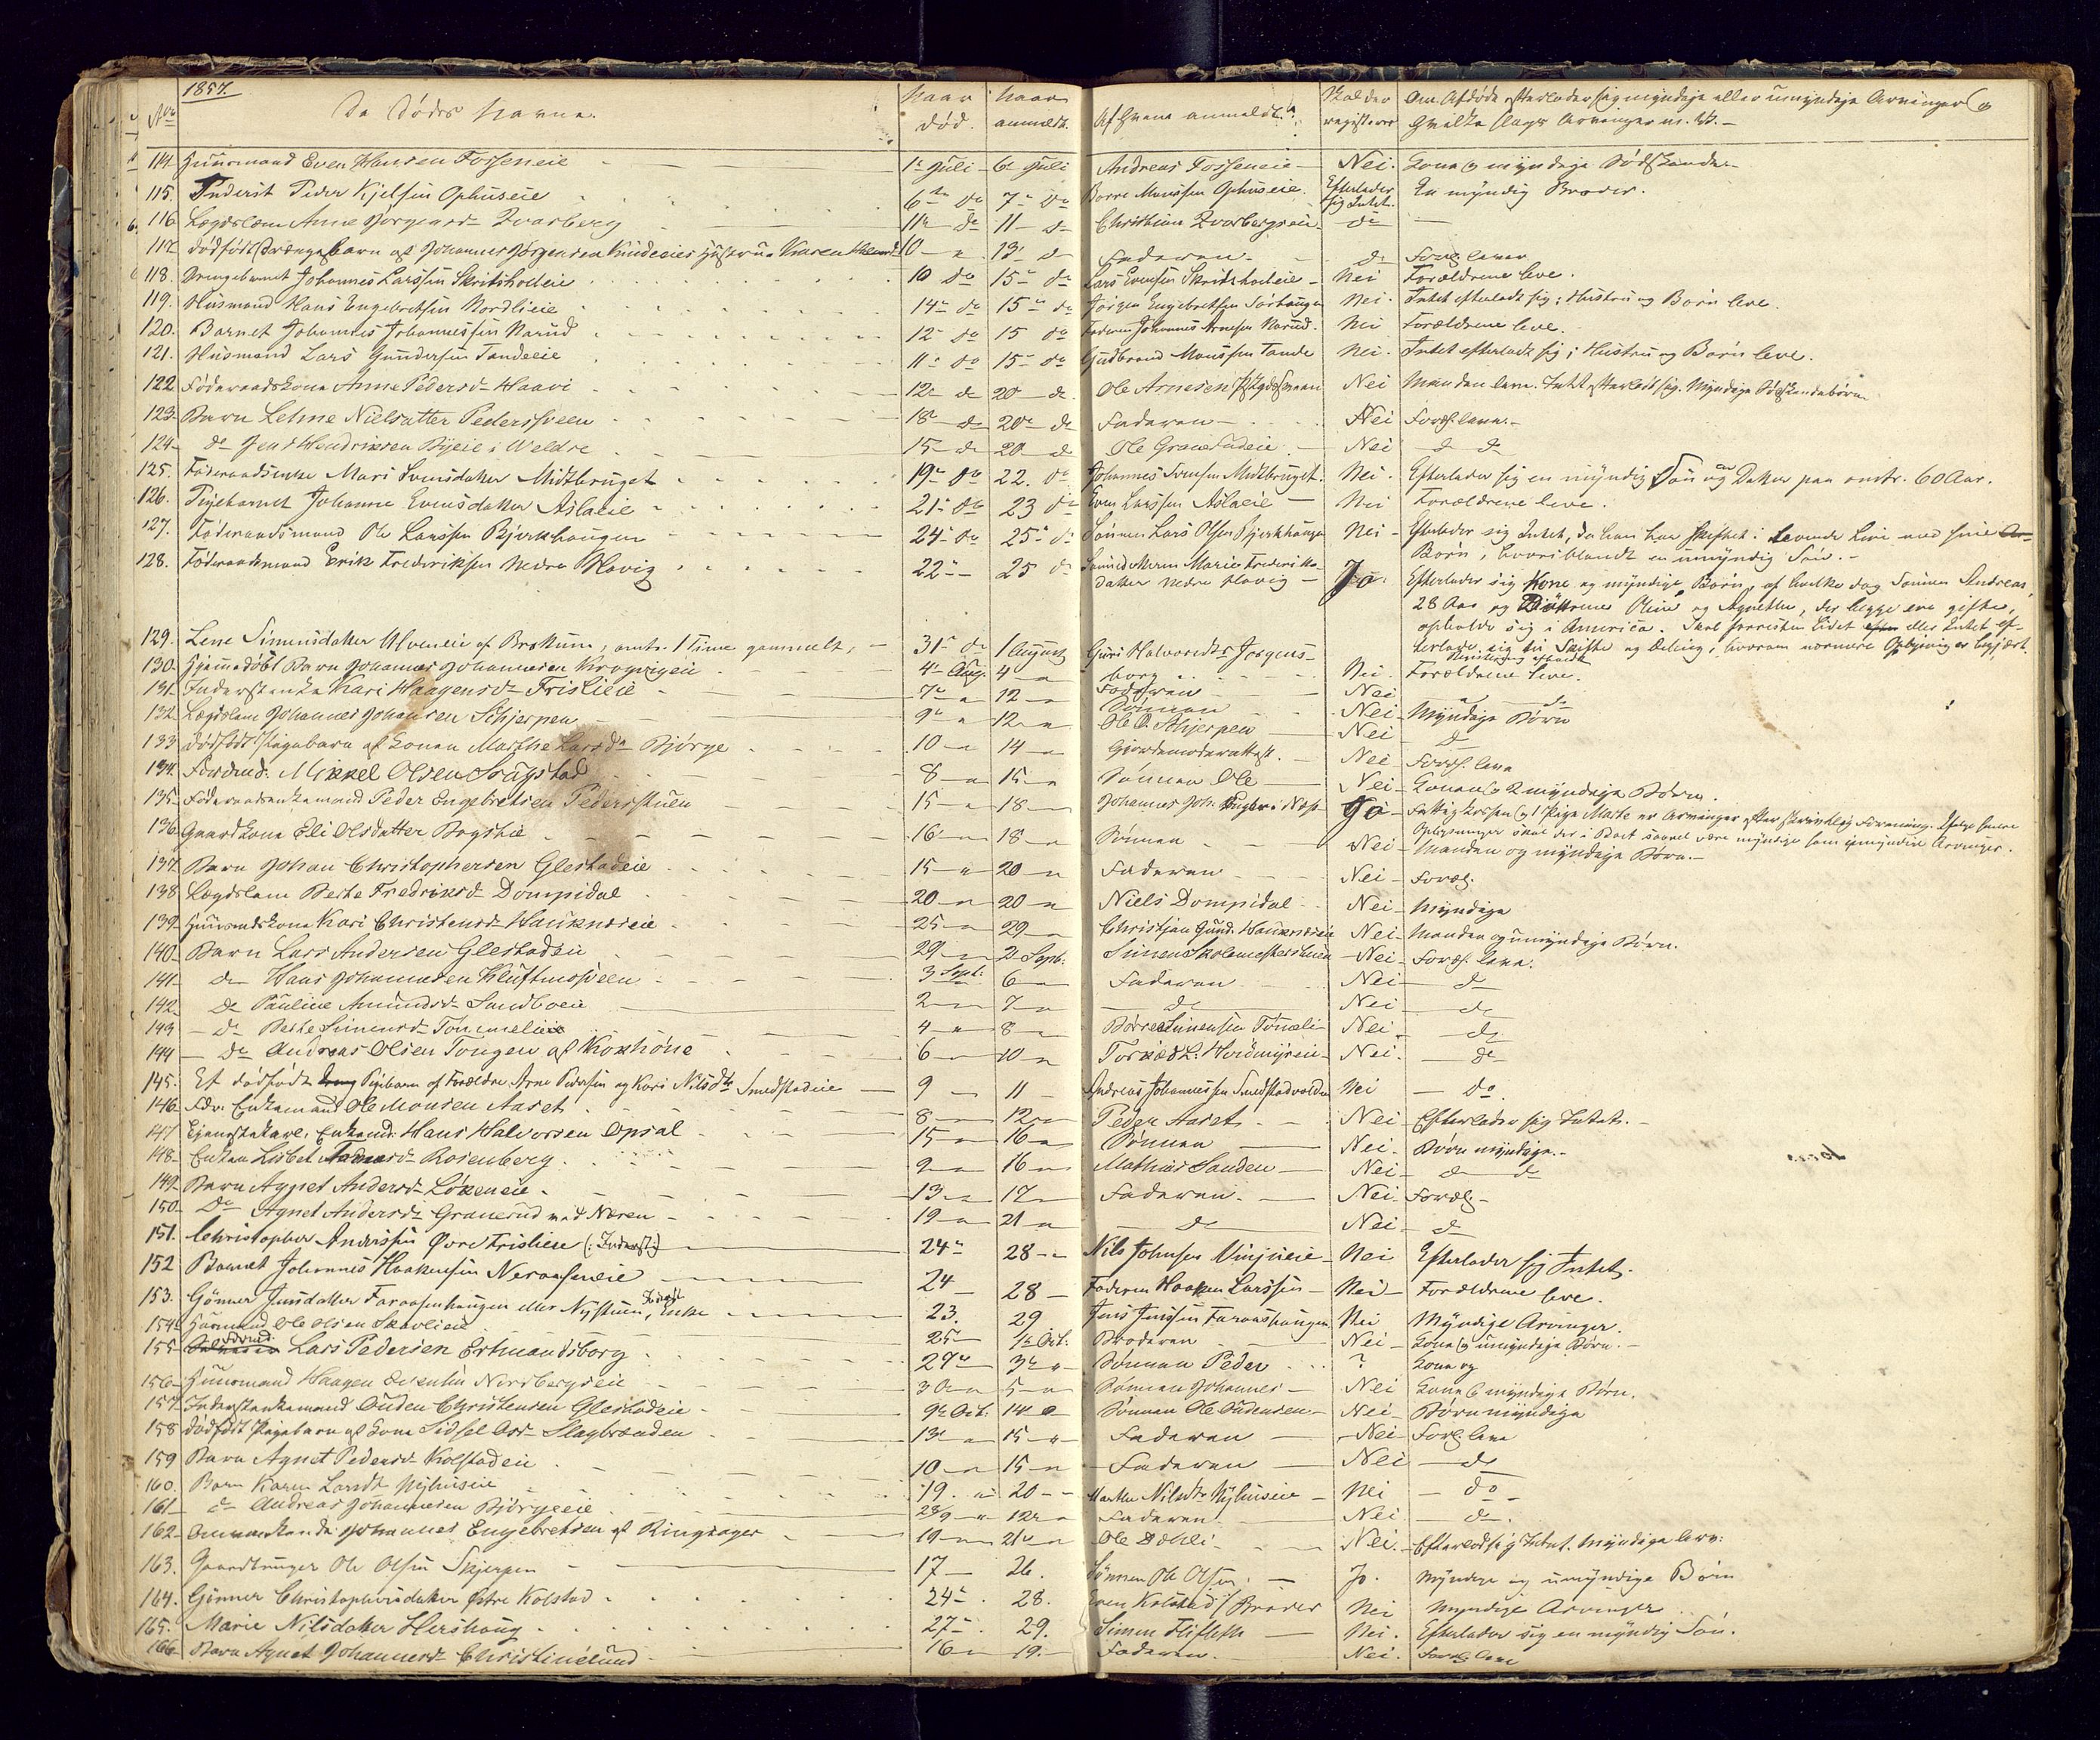 1857.
No De Dødes Navne. Naar død. Naar anmeldt. Af hvem anmeldt. Skal der registreres Om Afdøde efterlader sig myndige eller umyndige Arvinger og hvilke slags Arvinger m. V. -
114 Huusmand Even Hansen Fosseneie 1e Juli 6e Juli Andreas Fosseneie Nei. Kone og myndige Sødskende
115. Inderst Peder Kjelsen Ophuseie 6te do 7de do Borre Monssen Ophuseie. Efterlader sig Intet. En myndig Broder.
116 Lægdslem Anne Jørgensd. Zvarberg 11 do 11 do Christian Zvarbergseie do
117 Dødfødt Drengebarn af Johannes Jørgensen 10 13 do Faderen do Foræl. lever
118. Drengebarnet Johannes Larssen Skridsholeie 10 do 15 do Lars Evensen Skridsholeie Nei Forældrene leve.
119. Huusmand Hans Engebretsen Nordlieie 14 do 15 do Jørgen Engebretsen Sørhaugen Nei. Intet efterladt sig; Hustru og Børn leve.
120. Barnet Johannes Johannessen Narud 12 do 15 do Faderen Johannes Arnesen Narud. Nei Forældrene leve.
121. Huusmand Lars Gundersen Tandeeie 11 do 15 do Gudbrand Monssen Tande Nei. Intet efterladt sig; Hustru og Børn leve.
122 Føderaadskone Anne Pedersd. Haavi 12 do 20 do Ole Arnesen Nei Manden lever. Intet efterladt sig. Myndige Sødskendebørn
123 Barn Lehne Nielsdatter Pedersveen 18 do 20 do Faderen Nei Foræl. leve.
124 do Jens Hendriksen Byeie i Veldre 15 do 20 do Ole Nei do do
125. Føderaadsenke Mari Svensdatter Midtbruget 19 do 22. do Johannes Svensen Midtbruget. Nei. Efterlader sig en myndig Søn og en Datter paa omtr. 60 Aar.
126. Pigebarnet Johanne Evensdatter Aslaeie 21 do 23 do Even Larssen Aslaeie Nei Forældrene leve.
127. Føderaadsmand Ole Larssen Bjerkhaugen 24 do 25 do Sønnen Lars Olsen Bjerkhaugen Nei Efterlader sig Intet, da han har skiftet i levende Live med sine Børn, hvoriblandt en umyndig Søn.
128. Føderaadsmand Erik Frederiksen Nedre Hovig 22 25 do Marie Frederiksdatter nedre Hovig Ja. Efterlader sig Kone og myndige Børn, af hvilke dog Sønnen Andreas,
28 Aar og Døttrene Oline og Agnethe, der begge ere gifte,
opholde sig i America. Skal forresten Lidet eller Intet ef-
terlade sig til Skifte og Deling, hvorom nærmere Oplysning er begjært.
129. Lene Simensdatter Alveneie af Brøttum, omtr. 1 Time gammelt, 31 do 1 August Guri Halvorsdtr Jørgensborg Nei. Forældrene leve.
130. Hjemmedøbt Barn Johannes Johannesen Krogvigeie 4 Aug. 4 Faderen Nei do
131. Inderstenke Kari Haagensd. Frislieie 7 12 Sønnen Nei Myndige Børn
132. Lægdslem Johannes Johansen Schjerpen 9 12 Ole O. Skjerpen Nei do
133 Dødfødt Pigebarn af Konen Marthe Larsd. Bjørge 10 14 Gjordemoderattest. Nei Foræl. leve
134. Mikkel Olsen Saugstad 8 15 Sønnen Ole Nei Konen og 2 myndige Børn.
135. Føderaadsenkemand Peder Engebretsen Pedersstuen 15 18 Johannes Ja Fattigkassen og 1 Pige Marte er Arvinger efter skriftlig Forening.
136. Gaardkone Eli Olsdatter Bagslie 16 18 Sønnen Nei Manden og myndige Børn.
137 Barn Johan Christophersen Glestadeie 15 20 Faderen Nei Foræl.
138 Lægdslem Berthe Fredriksd. Dompidal 20 20 Niels Dompidal Nei Myndige
139 Huusmandskone Kari Christensd. Hauknæseie 25 29 Christian Gund. Hauknæseie Nei Manden og umyndige Børn.
140 Barn Lars Andersen Glestadeie 29 2 Septb: Simen Skolemesterstuen Nei Foræl. leve.
141 do Hans Johannesen Kluftmosveen 3 Sept. 6 Faderen Nei do
142 do Pauline Amundsd. Sandboeie 2 7 do Nei do
143 do Berthe Simensd. Tømmelieie 4 8 Børre Simensen Tømeli Nei do
144 do Andreas Olsen Tongen af 6 10 Nei do
145. Et dødfødt Pigebarn af Forældre Arne Pedersen og Kari Nilsdtr Smedstadeie 9 11 Andreas Johannessen Smedstadvolden Nei do
146. Fdr. Enkemand Ole Monsen Aaset 8 12 Peder Aaset Nei Efterlader sig Intet.
147 Tjenestekarl, Enkemd. Hans Halvorsen Opsal 15 16 Sønnen Nei. Børn myndige.
148. Enken Lisbet Rosenberg 9 16 Mathias Sanden Nei do do
149. Barn Agnet Andersd. Løkeneie 13 17 Faderen Nei Foræl.
150 do Agnet Andersd. Granerud ved Noren 19 21 do Nei do
151. Christopher Anderssen Øvre Frislieie (: Inderst:) 24 28 Nils Johnsen Vinjueie Nei Efterlader sig Intet.
152 Barnet Johannes Haakensen Neraaseneie 24 28 Faderen Haaken Larssen Nei Forældrene leve.
153. Gønner Jensdatter Faraasenhaugen eller Nystuen, Enke 23. 29 Jens Jenssen Faraashaugen Nei Myndige Arvinger.
154 Huusmand Ole Olsen Skavlieie 25 1 Oct: Broderen Nei Kone og umyndige Børn.
155 Lars Pedersen Ertmandsborg 27 3 Sønnen Peder ? Kone og
156 Huusmand Haagen Norsbergseie 30 5 Sønnen Johannes Nei Kone og myndige Børn.
157 Inderstenkemand Ouden Christensen Glestadeie 9 Oct: 14 Sønnen Ole Oudensen Nei Børn myndige
158 Dødfødt Pigebarn af Kone Sidsel Slagbrænden 13 15 Faderen Nei Foræl. leve
159 Barn Agnet Pedersd. Kolstadeie 10 15 Faderen Nei do
160. Barn Karen Larsdt. Nyhuseie 19. 20 Marthe Nilsdtr Nyhuseie Nei do
161 do Andreas Johannesen Bjørgeeie 28/9 12 Faderen Nei do.
162 Johannes Engebretsen af Ringsager 19 21 Ole Dæhli Nei. Efterladt sig Intet. Myndige Arv:
163. Gaardbruger Ole Olsen Skjerpen 17 26. Sønnen Ole Olsen Ja. Myndige og umyndige Børn
164. Gønner Christophersdatter Østre Kolstad 24 28. Even Kolstad / Broder Nei Myndige Arvinger
165. Marie Nilsdatter Hershaug 27 29. Simen Nei. Efterlader sig en myndig Søn.
166 Barn Agnet Johannesd. Christinelund 16 19. Faderen. Nei. Foræl. leve